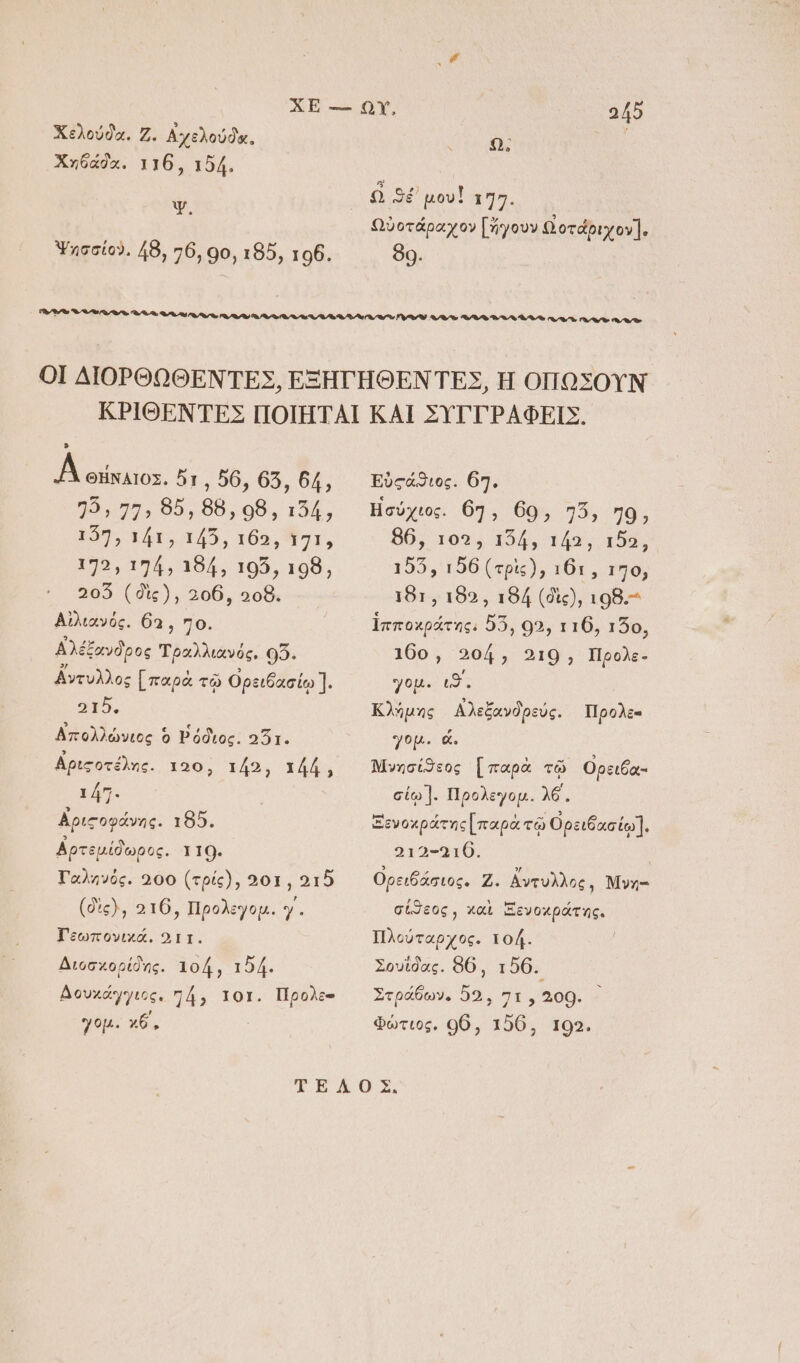 ΧΕ — ΩΥ. 245
Χελούδα. Ζ. Ἀχελούδα.
Χηβάδα. 116, 154.
Ψ.
Ψησσίον. 48, 76, 90, 185, 196.
Ω.
Ὦ Θέ μου! 177.
Ὠὀοτάραχον [ἤγουν Ὠοτάριχον].
89.
ΟΙ ΔΙΟΡΘΩΘΕΝΤΕΣ, ΕΞΗΓΗΘΕΝΤΕΣ, Η ΟΠΩΣΟΥΝ
ΚΡΙΘΕΝΤΕΣ ΠΟΙΗΤΑΙ ΚΑΙ ΣΥΓΓΡΑΦΕΙΣ.
ἈΘΗΝΑΙΟΣ. 51, 56, 63, 64,
75, 77, 85, 88, 98, 134,
137, 141, 143, 162, 171,
172, 174, 184, 193, 198,
203 (δὶς), 206, 208.
Αἰλιανός. 62, 70.
Ἀλέξανδρος Τραλλιανός. 93.
Ἄντυλλος [παρὰ τῷ Ὀρειβασίῳ].
215.
Ἀπολλώνιος ὁ Ῥόδιος. 231.
Ἀριϛοτέλης. 120, 142, 144,
147.
Ἀριϛοφάνης. 185.
Ἀρτεμίδωρος. 119.
Γαληνός. 200 (τρίς), 201, 215
(δὶς), 216, Προλεγομ. γ΄.
Γεωπονικά. 211.
Διοσκορίδης. 104, 154.
Δουκάγγιος. 74, 101. Προλε-
γομ. κϐ΄.
Εὐϛάθιος. 67.
Ἡσύχιος. 67, 69, 73, 79,
86, 102, 134, 142, 152,
153, 156 (τρὶς), 161, 170,
181, 182, 184 (δὶς), 198.-
Ἱπποκράτης. 53, 92, 116, 130,
160, 204, 219, Προλε-
γομ. ιθ΄.
Κλήμης Ἀλεξανδρεύς. Προλε-
γομ. ά.
Μνησίθεος [παρὰ τῷ Ὀρειβα-
σίῳ]. Προλεγομ. λϐ΄.
Ξενοκράτης [παρὰ τῷ Ὀρειβασίῳ].
212-216.
Ὀρειβάσιος. Ζ. Ἄντυλλος, Μνη-
σίθεος, καὶ Ξενοκράτης.
Πλούταρχος. 104.
Σουΐδας. 86, 156.
Στράβων. 52, 71, 209.
Φώτιος. 96, 156, 192.
ΤΕΛΟΣ.